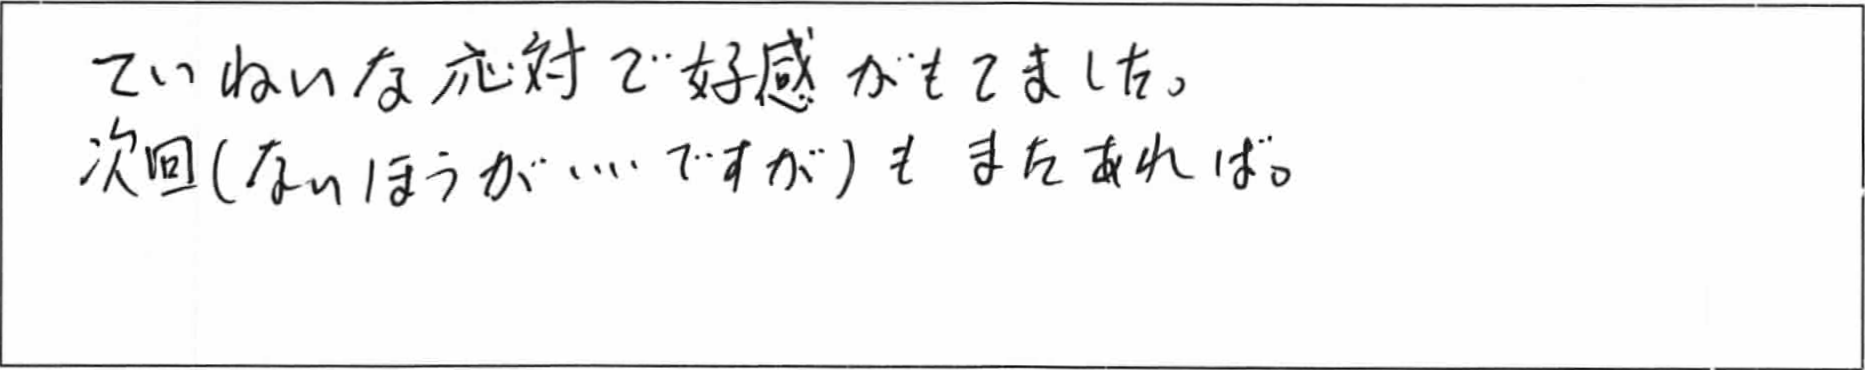 ていねいな応対で好感がもてました。
次回(ないほうが…ですが)もまたあれば。